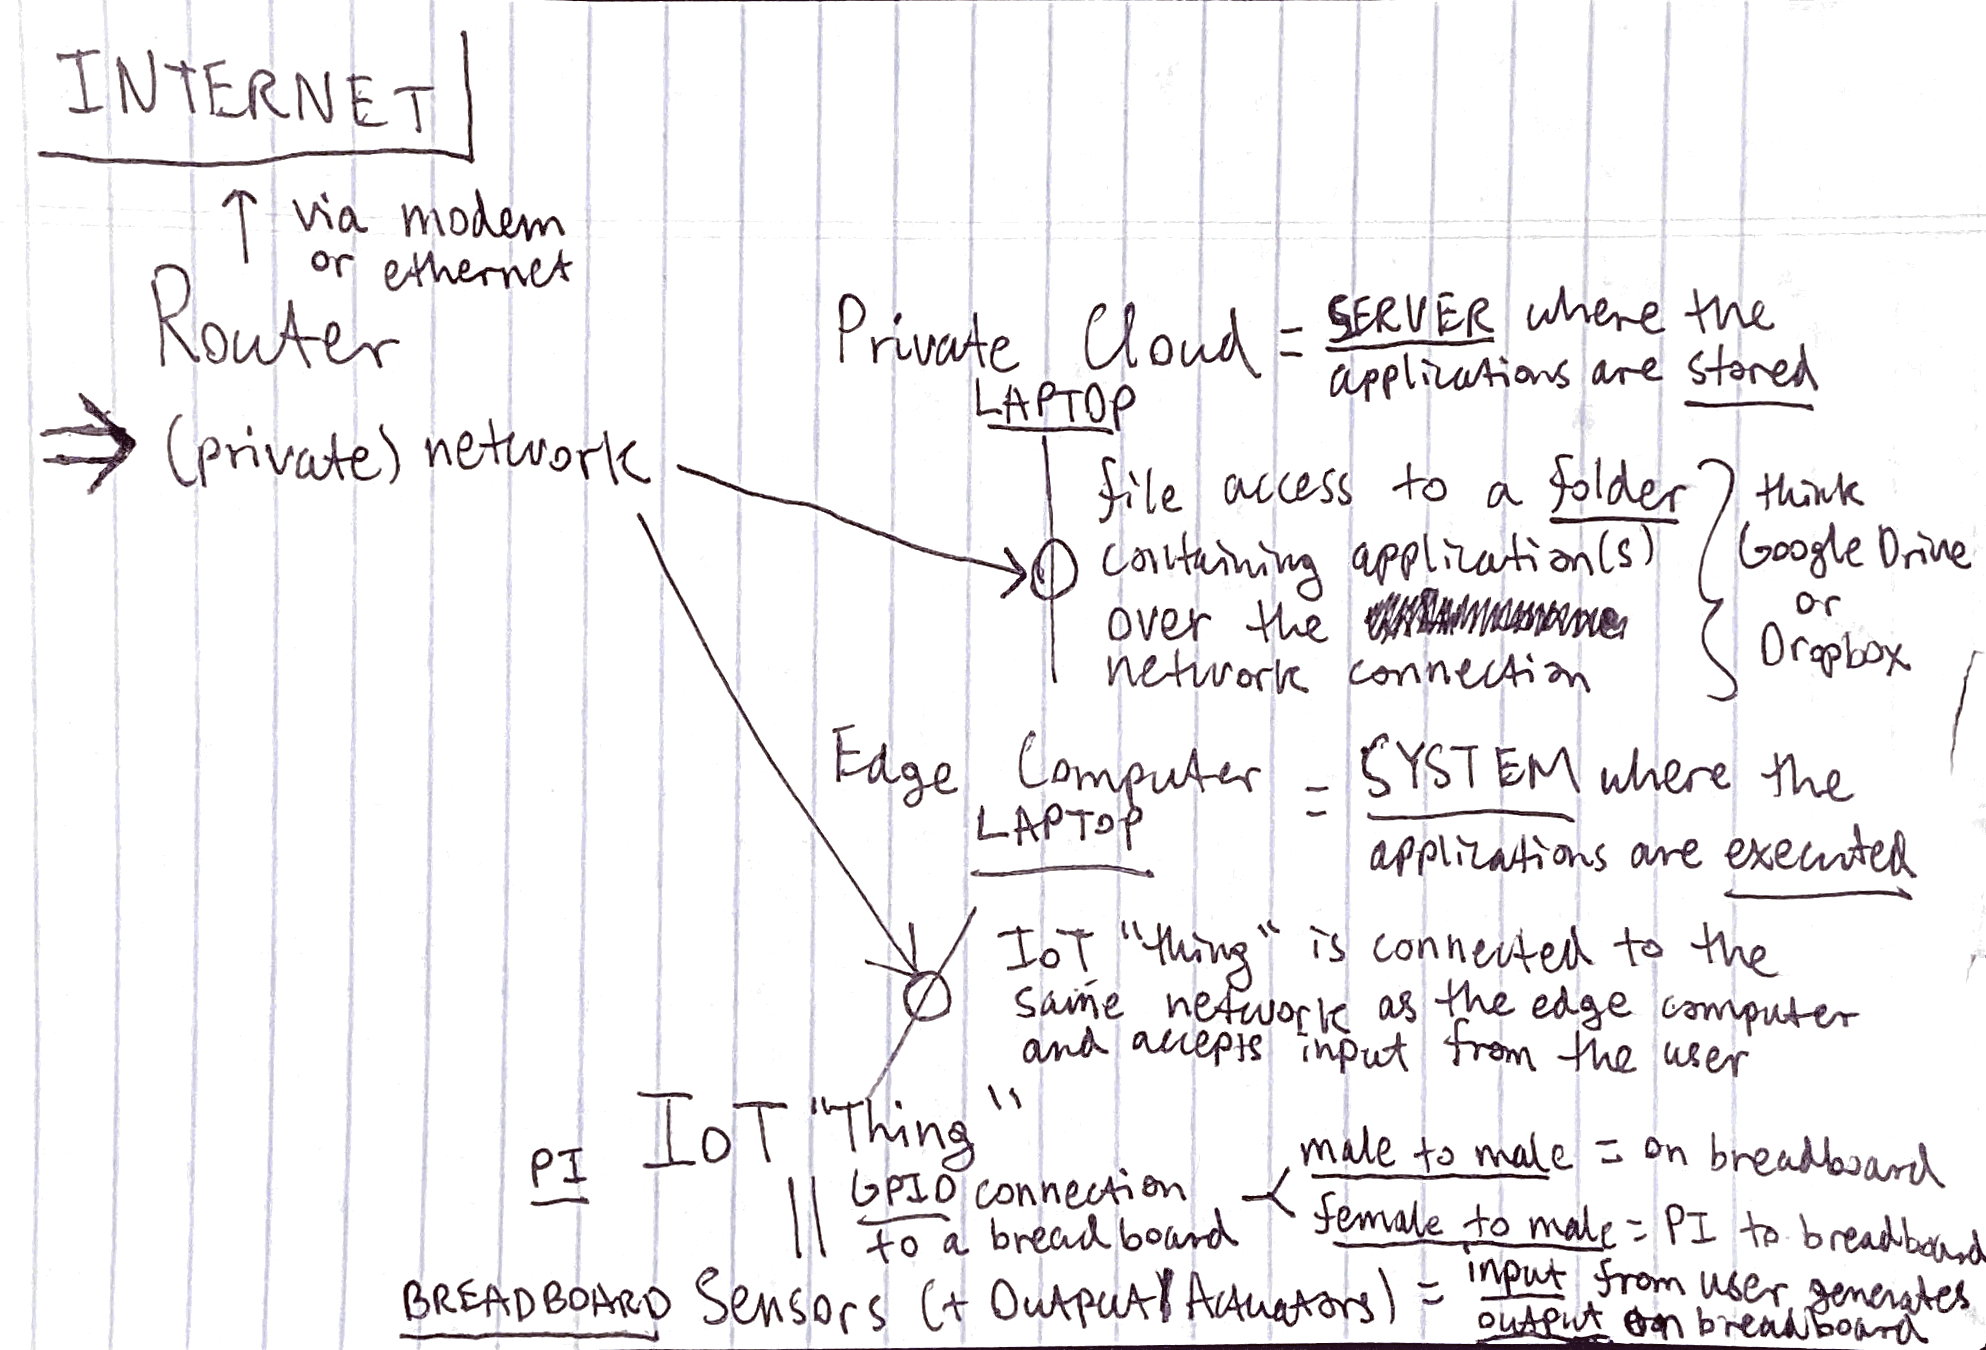 INTERNET
↑ via modem
or ethernet
Router
⇒ (private) network
Private Cloud = SERVER where the
applications are stored
LAPTOP
file access to a folder
containing application(s)
over the
network connection
think
Google Drive
or
Dropbox
Edge Computer = SYSTEM where the
LAPTOP
applications are executed
IoT "thing" is connected to the
same network as the edge computer
and accepts input from the user
PI IoT "Thing"
GPIO connection
to a breadboard
male to male = on breadboard
female to male = PI to breadboard
BREADBOARD Sensors (+ Output/Actuators) = input from user generates
output on breadboard